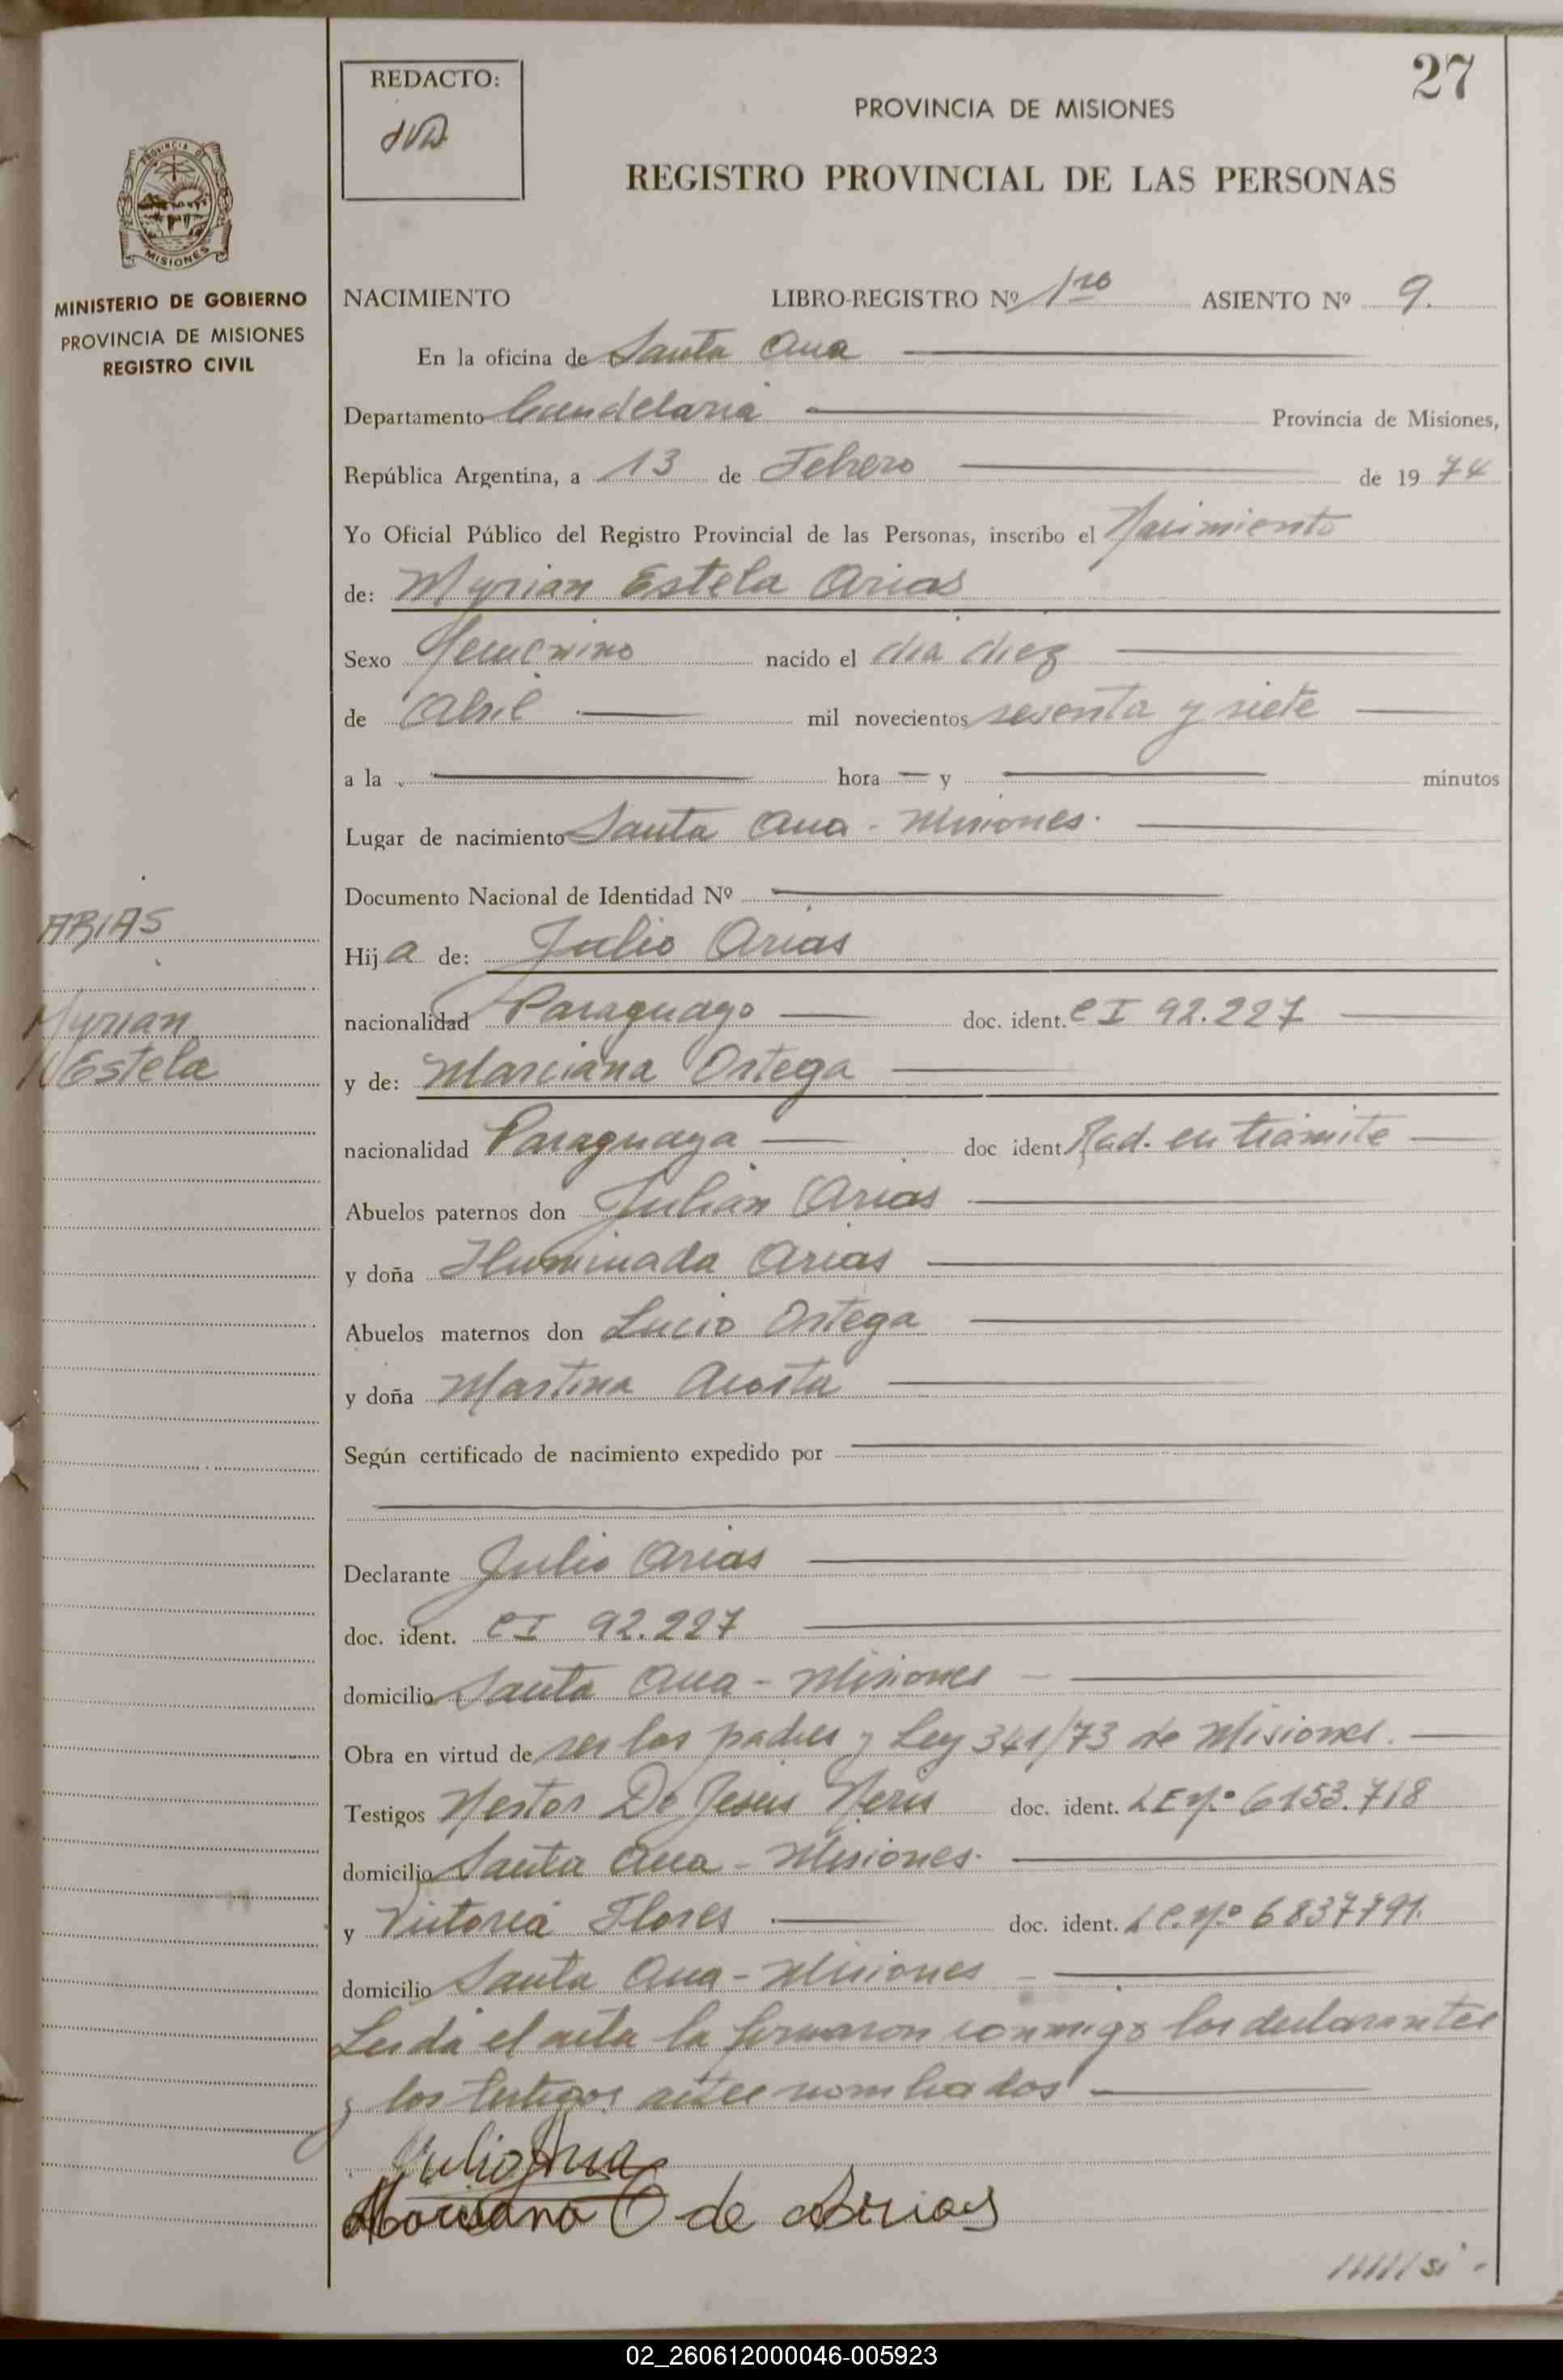 27
REDACTO:
PROVINCIA DE MISIONES
REGISTRO PROVINCIAL DE LAS PERSONAS
PROVINCIA DE
MISIONES
MINISTERIO DE GOBIERNO
PROVINCIA DE MISIONES
REGISTRO CIVIL
NACIMIENTO LIBRO-REGISTRO Nº 1ro ASIENTO Nº 9.
En la oficina de Santa Ana
Departamento Candelaria Provincia de Misiones,
República Argentina, a 13 de Febrero de 19 74
Yo Oficial Público del Registro Provincial de las Personas, inscribo el Nacimiento
de: Myrian Estela Arias
Sexo Femenino nacido el día diez
de Abril mil novecientos sesenta y siete
a la hora y minutos
Lugar de nacimiento Santa Ana - Misiones.
Documento Nacional de Identidad Nº
ARIAS
Hij a de: Julio Arias
Myrian
nacionalidad Paraguayo doc. ident. CI 92.227
Estela
y de: Marciana Ortega
nacionalidad Paraguaya doc ident. Rad. en trámite
Abuelos paternos don Julián Arias
y doña Iluminada Arias
Abuelos maternos don Lucio Ortega
y doña Martina Acosta
Según certificado de nacimiento expedido por
Declarante Julio Arias
doc. ident. CI 92.227
domicilio Santa Ana - Misiones
Obra en virtud de ser los padres y Ley 341/73 de Misiones.
Testigos Nestor De Jesús Neris doc. ident. LE Nº 6153.718
domicilio Santa Ana - Misiones.
y Victoria Flores doc. ident. LC. Nº 6837791.
domicilio Santa Ana - Misiones
Leida el acta la firmaron conmigo los declarantes
y los testigos antes nombrados
Julio Aria
Marciana O de Arias
02_260612000046-005923